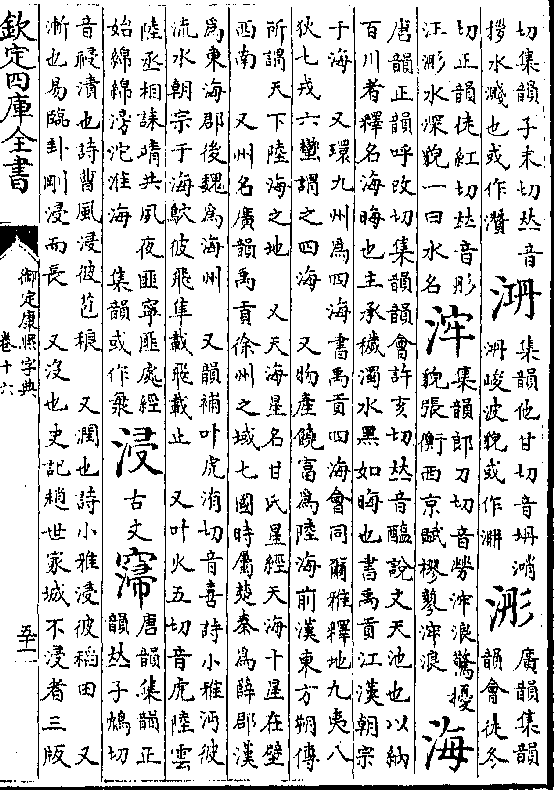 切集韻子末切𠀤音
拶水濺也或作灒
集韻他甘切音坍
峻波貌或作
浵
廣韻集韻
韻會徒冬
切正韻徒紅切𠀤音彤
汪浵水深貌一曰水名
浶
集韻郎刀切音勞浶浪驚擾
貌張衡西京賦摎蓼浶浪
海
唐韻正韻呼改切集韻韻會許亥切𠀤音醢說文天池也以納
百川者釋名海晦也主承穢濁水黑如晦也書禹貢江漢朝宗
于海 又環九州爲四海書禹貢四海會同爾雅釋地九夷八
狄七戎六蠻謂之四海 又物產饒富爲陸海前漢東方朔傳
所謂天下陸海之地 又天海星名甘氏星經天海十星在壁
西南 又州名廣韻禹貢徐州之域七國時屬楚秦爲薛郡漢
爲東海郡後魏爲海州 又韻補叶虎洧切音喜詩小雅沔彼
流水朝宗于海鴥彼飛隼載飛載止 又叶火五切音虎陸雲
陸丞相誄靖共夙夜匪寧匪處經
始綿綿滂沱淮海 集韻或作
浸
古文
唐韻集韻正
韻𠀤子鴆切
音祲漬也詩曹風浸彼苞稂 又潤也詩小雅浸彼稻田 又
漸也易臨卦剛浸而長 又沒也史記趙世家城不浸者三版
欽定四庫全書
御定康熙字典
卷十六